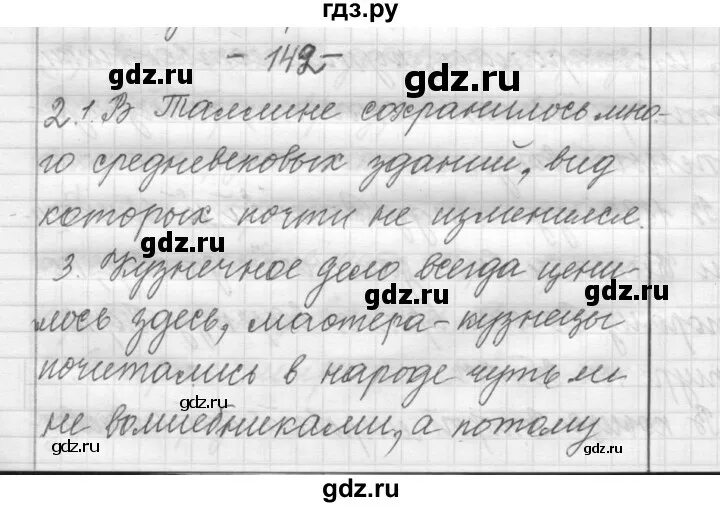 гдз.ру
- 142 -
gdz.ru gdz.ru
2.1. В Таллине сохранилось мно-
го средневековых зданий, вид
которых почти не изменился.
gdz.ru
3. Кузнечное дело всегда цени-
gdz.ru gdz.ru
лось здесь, мастера-кузнецы
почитались в народе чуть ли
gdz.ru gdz.ru
не волшебниками, а потому
gdz.ru